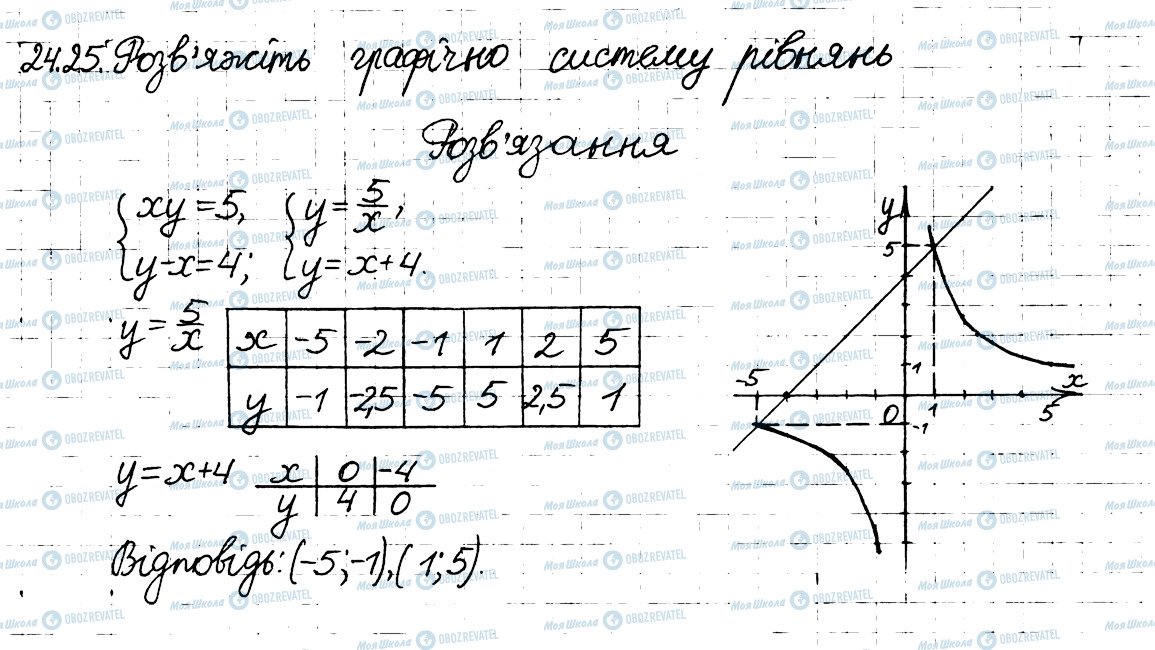 24.25. Розв'яжіть графічно систему рівнянь
Розв'язання
{ xy = 5, { y = 5/x ;
y - x = 4; y = x + 4.
y = 5/x
x -5 -2 -1 1 2 5
y -1 -2,5 -5 5 2,5 1
y = x + 4
x 0 -4
y 4 0
Відповідь: (-5; -1), (1; 5).
y
5
1
-5
x
0
1
5
-1
МояШкола OBOZREVATEL